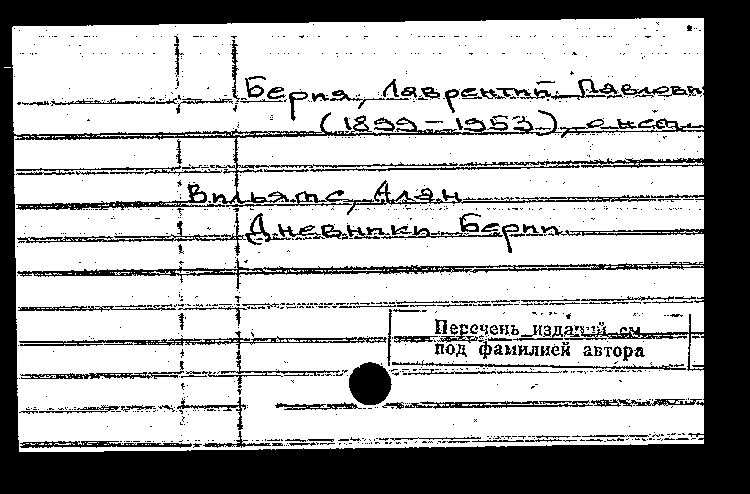 Берия, Лаврентий Павлови
(1899-1953), о нем.
Вильямс, Алан
Дневники Берии
Перечень изданий см
под фамилией автора